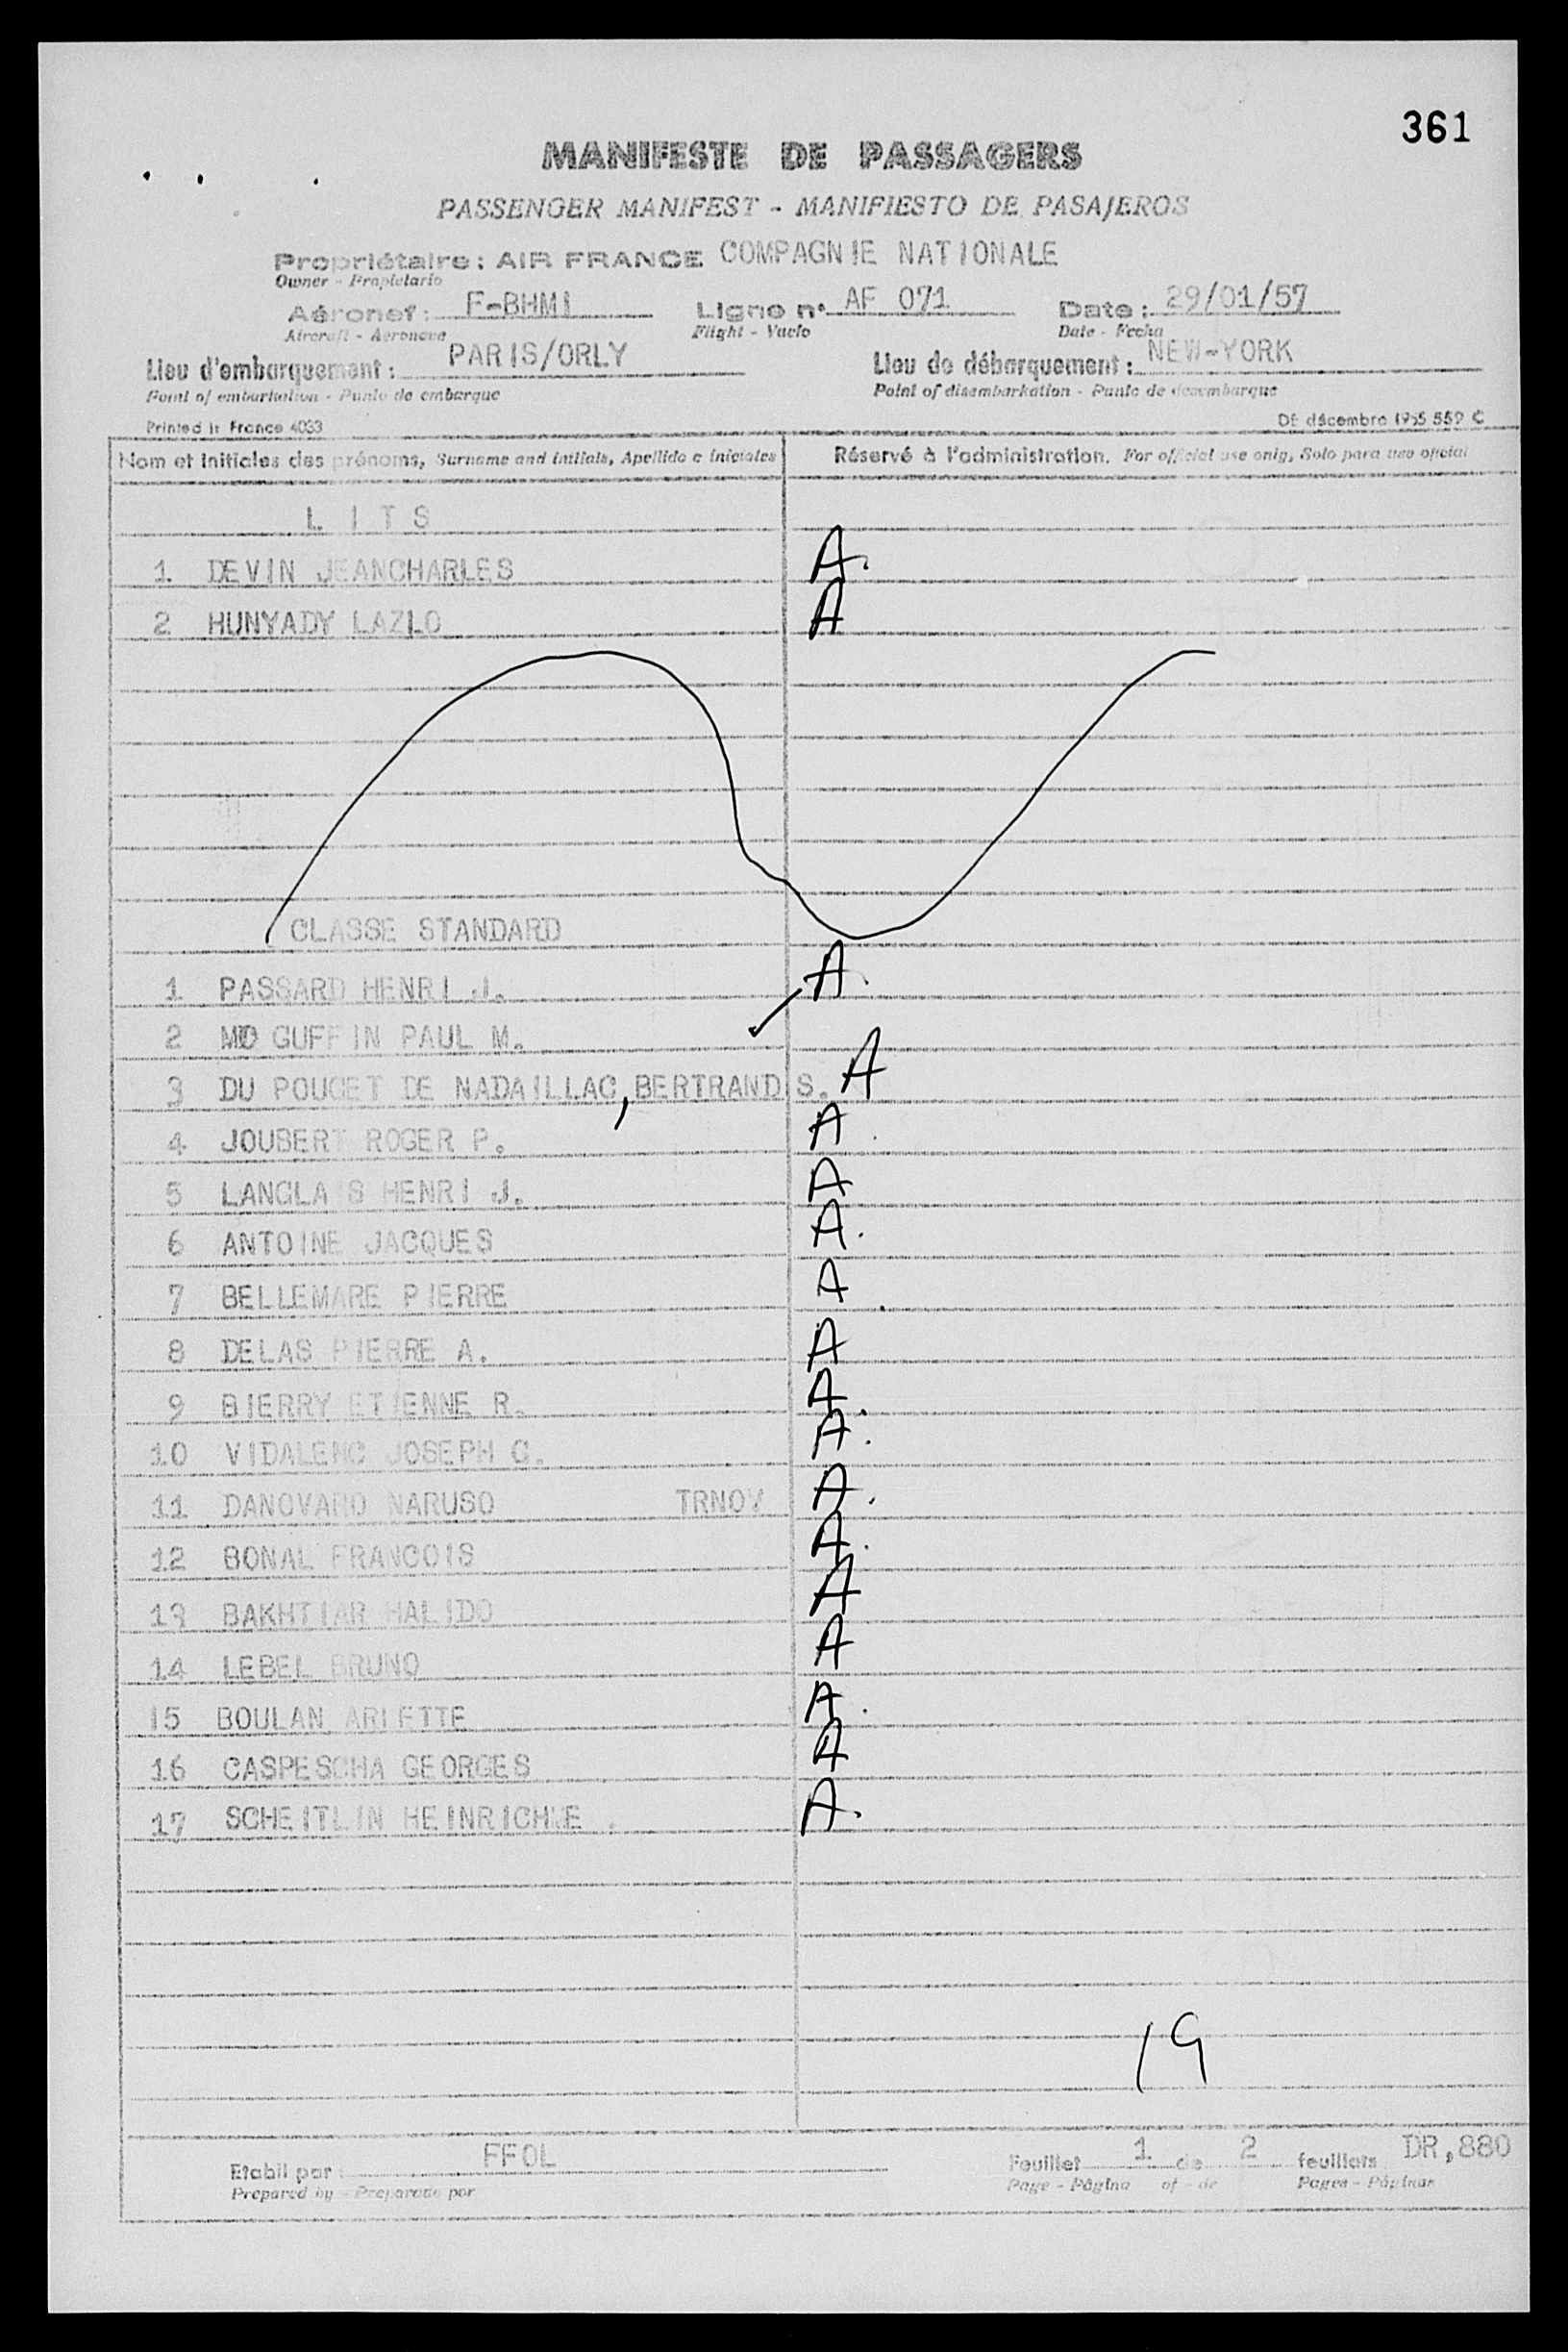 361
MANIFESTE DE PASSAGERS
PASSENGER MANIFEST - MANIFIESTO DE PASAJEROS
Propriétaire : AIR FRANCE COMPAGNIE NATIONALE
Owner - Propietario
Aéronef : F-BHMI Ligne n° AF 071 Date : 29/01/57
Aircraft - Aeronave Flight - Vuelo Date - Fecha
Lieu d'embarquement : PARIS/ORLY Lieu de débarquement : NEW-YORK
Point of embarkation - Punto de embarque Point of disembarkation - Punto de desembarque
Printed in France 4033 DE décembre 1955 559 C
Nom et initiales des prénoms, Surname and initials, Apellido e iniciales Réservé à l'administration. For official use only, Solo para uso oficial
L I T S
1 DEVIN JEANCHARLES A.
2 HUNYADY LAZLO A
CLASSE STANDARD
1 PASSARD HENRI J. A.
2 GUFFIN PAUL M.
3 DU POUGET DE NADAILLAC, BERTRAND S. A
4 JOUBERT ROGER P. A
5 LANGLAIS HENRI J. A
6 ANTOINE JACQUES A.
7 BELLEMARE PIERRE A
8 DELAS PIERRE A. A
9 BIERRY ETIENNE R. A.
10 VIDALENC JOSEPH G. A.
11 DANOVARO NARUSO TRNOV A.
12 BONAL FRANCOIS A.
13 BAKHTIAR HALIDO A
14 LEBEL BRUNO A
15 BOULAN ARLETTE A.
16 CASPESCHA GEORGES A
17 SCHEITLIN A.
19
Etabli par : FFOL Feuillet 1 de 2 feuillets DR,880
Prepared by - Preparado por Page - Página of - de Pages - Páginas